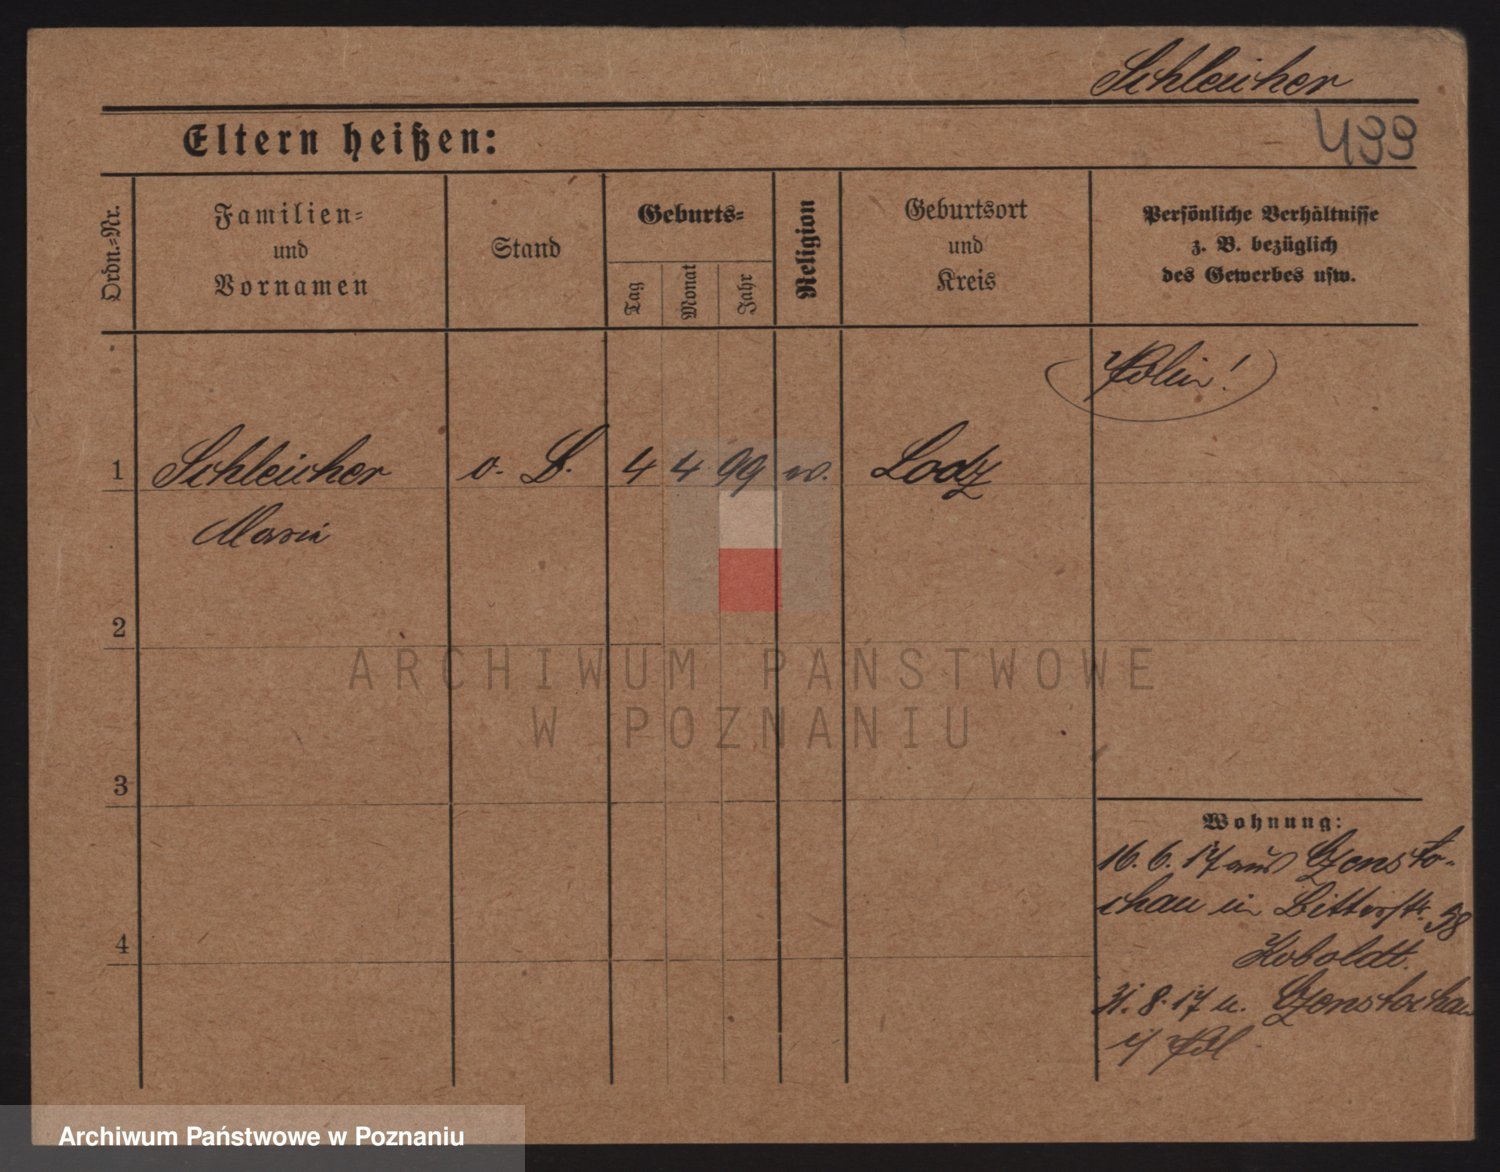 Schleicher
Eltern heißen:
499
Ordn.-Nr.
Familien-
und
Vornamen
Stand
Geburts-
Tag
Monat
Jahr
Religion
Geburtsort
und
Kreis
Persönliche Verhältnisse
z. B. bezüglich
des Gewerbes usw.
Polin!
1 Schleicher o. B. 4 4 99 Lodz
Maria
2
ARCHIWUM PAŃSTWOWE
W POZNANIU
3
Wohnung:
16. 6. 17 aus Czensto-
chau in Bitterstr. 38
Koboldt.
4
31. 8. 17 n. Czenstochau
i/ Pol
Archiwum Państwowe w Poznaniu